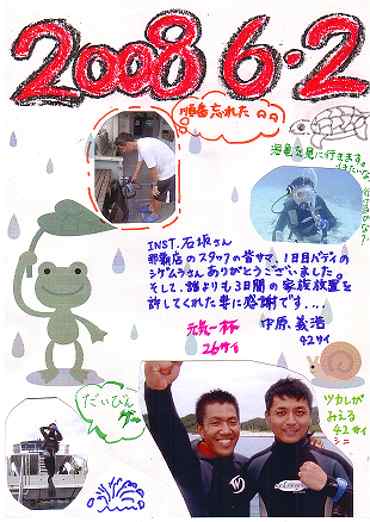 2008 6・2
順番忘れた の の
海亀を見に行きます。
イきたいな。
行けるかな?
INST. 石坂さん
那覇店のスタッフの皆サマ、1日目バディの
シゲムラさんありがとうございました。
そして、誰よりも3日間の家族放置を
許してくれた妻に感謝です...
元気一杯
26サイ
中原、義浩
42サイ
だいびんぐー
ツカレが
みえる
42サイ
シニ